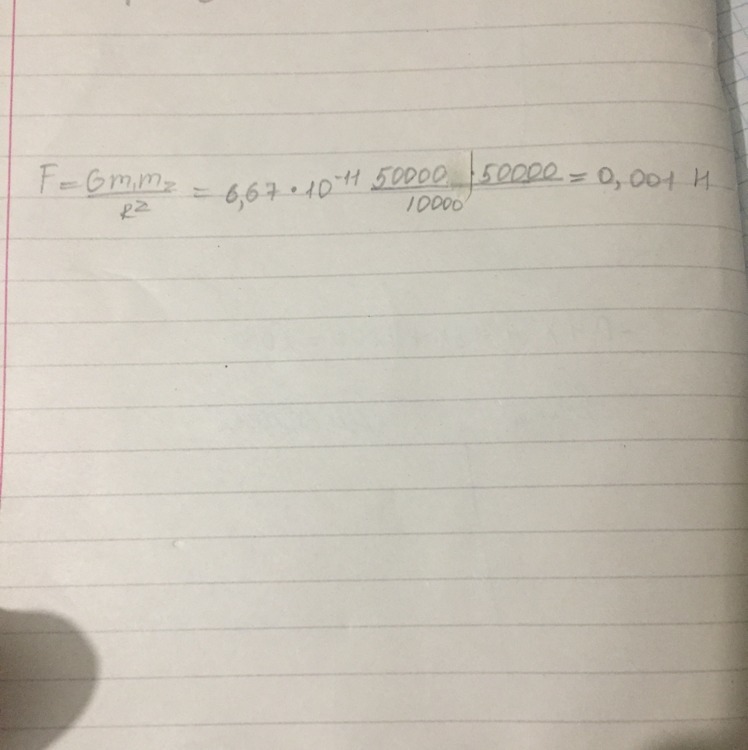 F = Gm₁m₂/R² = 6,67 · 10⁻¹¹ 50000 · 50000/10000 = 0,001 Н